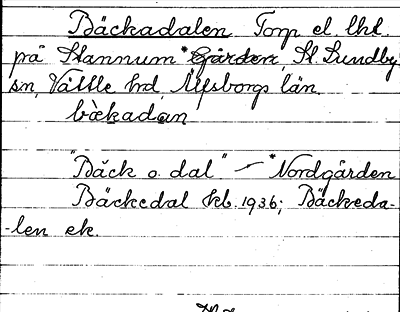 Bäckadalen. Torp el. lht.
på Stannum *Gården, St. Lundby
sn, Vättle hd, Älfsborgs län.
bäkadan
"Bäck o. dal" — *Nordgården
Bäckedal kb. 1936; Bäckeda-
-len ek.